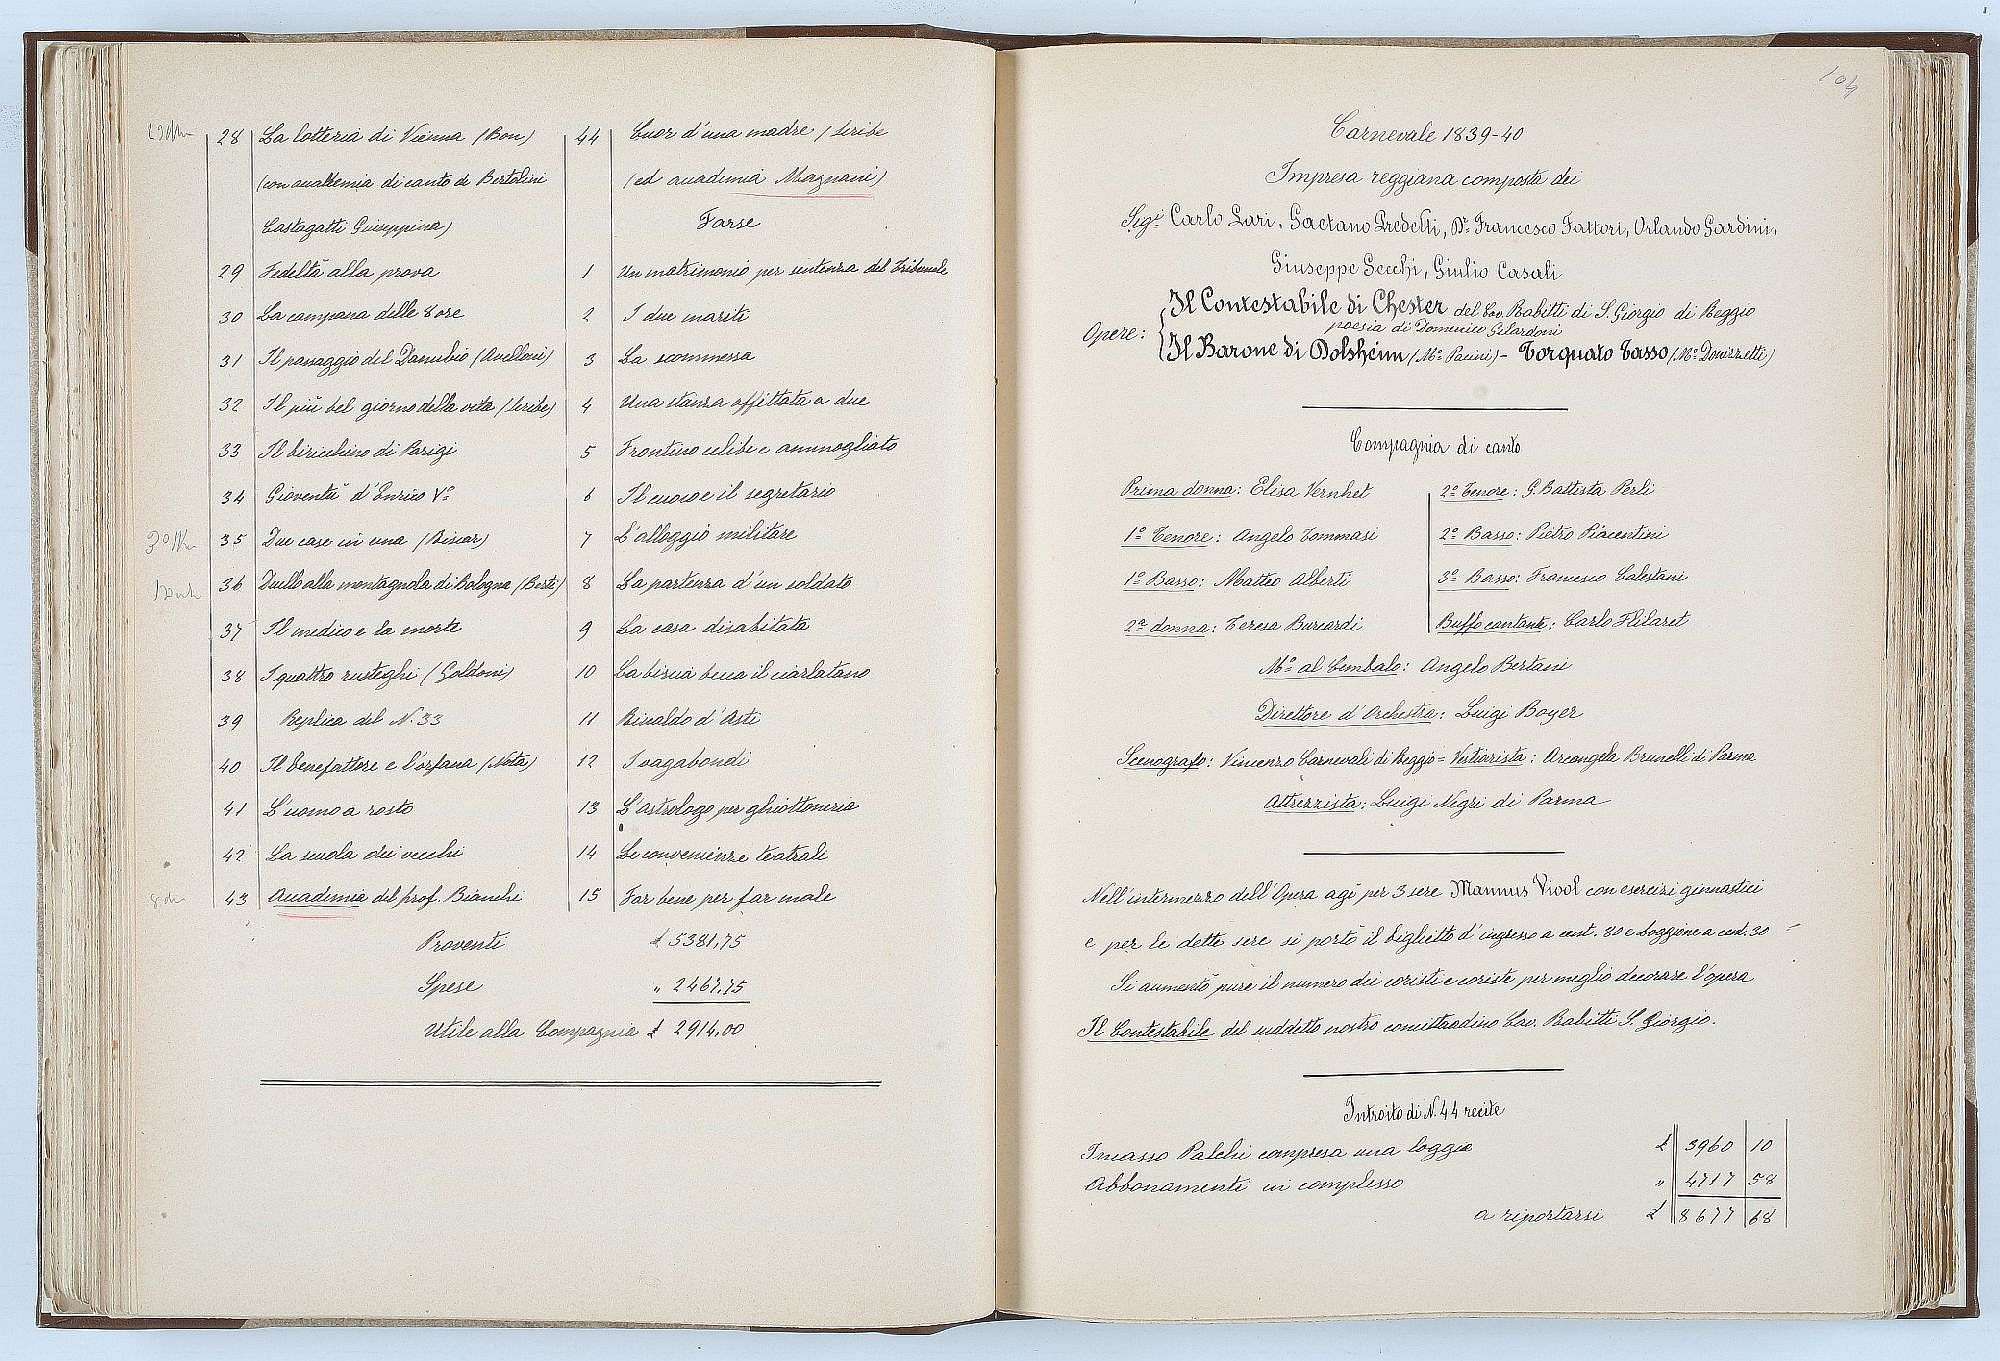 28 La lotteria di Vienna (Bon)
(con accademia di canto di Bertolini
Castagatti Guiseppina)
29 Fedeltà alla prova
30 La campana delle 8 ore
31 Il passaggio del Danubio (Avelloni)
32 Il più bel giorno della vita (Scribe)
33 Il biricchino di Parigi
34 Gioventù d'Enrico Vº
35 Due case in una (Bisear)
36 Duello alla montagnola di Bologna (Berti)
37 Il medico e la morte
38 I quattro rusteghi (Goldoni)
39 Replica del N. 33
40 Il benefattore e l'orfana (Nota)
41 L'uomo a rosto
42 La scuola dei vecchi
43 Accademia del prof. Bianchi
44 Cuor d'una madre (Scribe
(ed accademia Magnani)
Farse
1 Un matrimonio per sentenza del Tribunale
2 I due mariti
3 La scommessa
4 Una stanza affittata a due
5 Frontino celibe e ammogliato
6 Il cuoco e il segretario
7 L'alloggio militare
8 La partenza d'un soldato
9 La casa disabitata
10 La biscia becca il ciarlatano
11 Rinaldo d'Asti
12 I vagabondi
13 L'astrologo per ghiottoneria
14 Le convenienze teatrali
15 Far bene per far male
Proventi £ 5381,75
Spese " 2467,75
Utile alla Compagnia £ 2914,00
104
Carnevale 1839-40
Impresa reggiana composta dei
Sigi Carlo Lari, Gaetano Predelli, Dr. Francesco Fattori, Orlando Gardini,
Giuseppe Secchi, Giulio Casali
Opere: Il Contestabile di Chester del Cav. Rabitti di S. Giorgio di Reggio
poesia di Domenico Gilardoni
Il Barone di Dolsheim (Mº Pacini) - Torquato Tasso (Mº Donizzetti)
Compagnia di canto
Prima donna: Elisa Vernhet
1º Tenore: Angelo Tommasi
1º Basso: Matteo Alberti
2ª donna: Teresa Burcardi
2º Tenore: G. Battista Perli
2º Basso: Pietro Piacentini
3º Basso: Francesco Calestani
Buffo cantante: Carlo Hilaret
Mº al Cembalo: Angelo Bertani
Direttore d'Orchestra: Luigi Boyer
Scenografo: Vincenzo Carnevali di Reggio = Vestiarista: Arcangela Brunelli di Parma
Attrezzista: Luigi Negri di Parma
Nell'intermezzo dell'Opera agì per 3 sere Mannus Viool con esercizi ginnastici
e per le dette sere si portò il biglietto d'ingresso a cent. 80 e Loggione a cent. 30
Si aumentò pure il numero dei coristi e coriste per meglio decorare l'opera
Il Contestabile del suddetto nostro concittadino Cav. Rabitti S. Giorgio.
Introito di N. 44 recite
Incasso Palchi compresa una loggia £ 3960 10
Abbonamenti in complesso " 4717 58
a riportarsi £ 8677 68